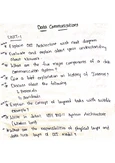 Data Communications
UNIT-1
Explain OSI Architecture with neat diagram
Evaluate and explain about your understanding
about Network
What are the five major components of a
Communication System?
Give a brief explanation on history of Internet
Discuss about the following
1. Protocols
2. Standards
Explain the concept of layered tasks with suitable
example
Write in detail about system Architecture
What are the responsibilities of physical layer and
data link layer of OSI model?